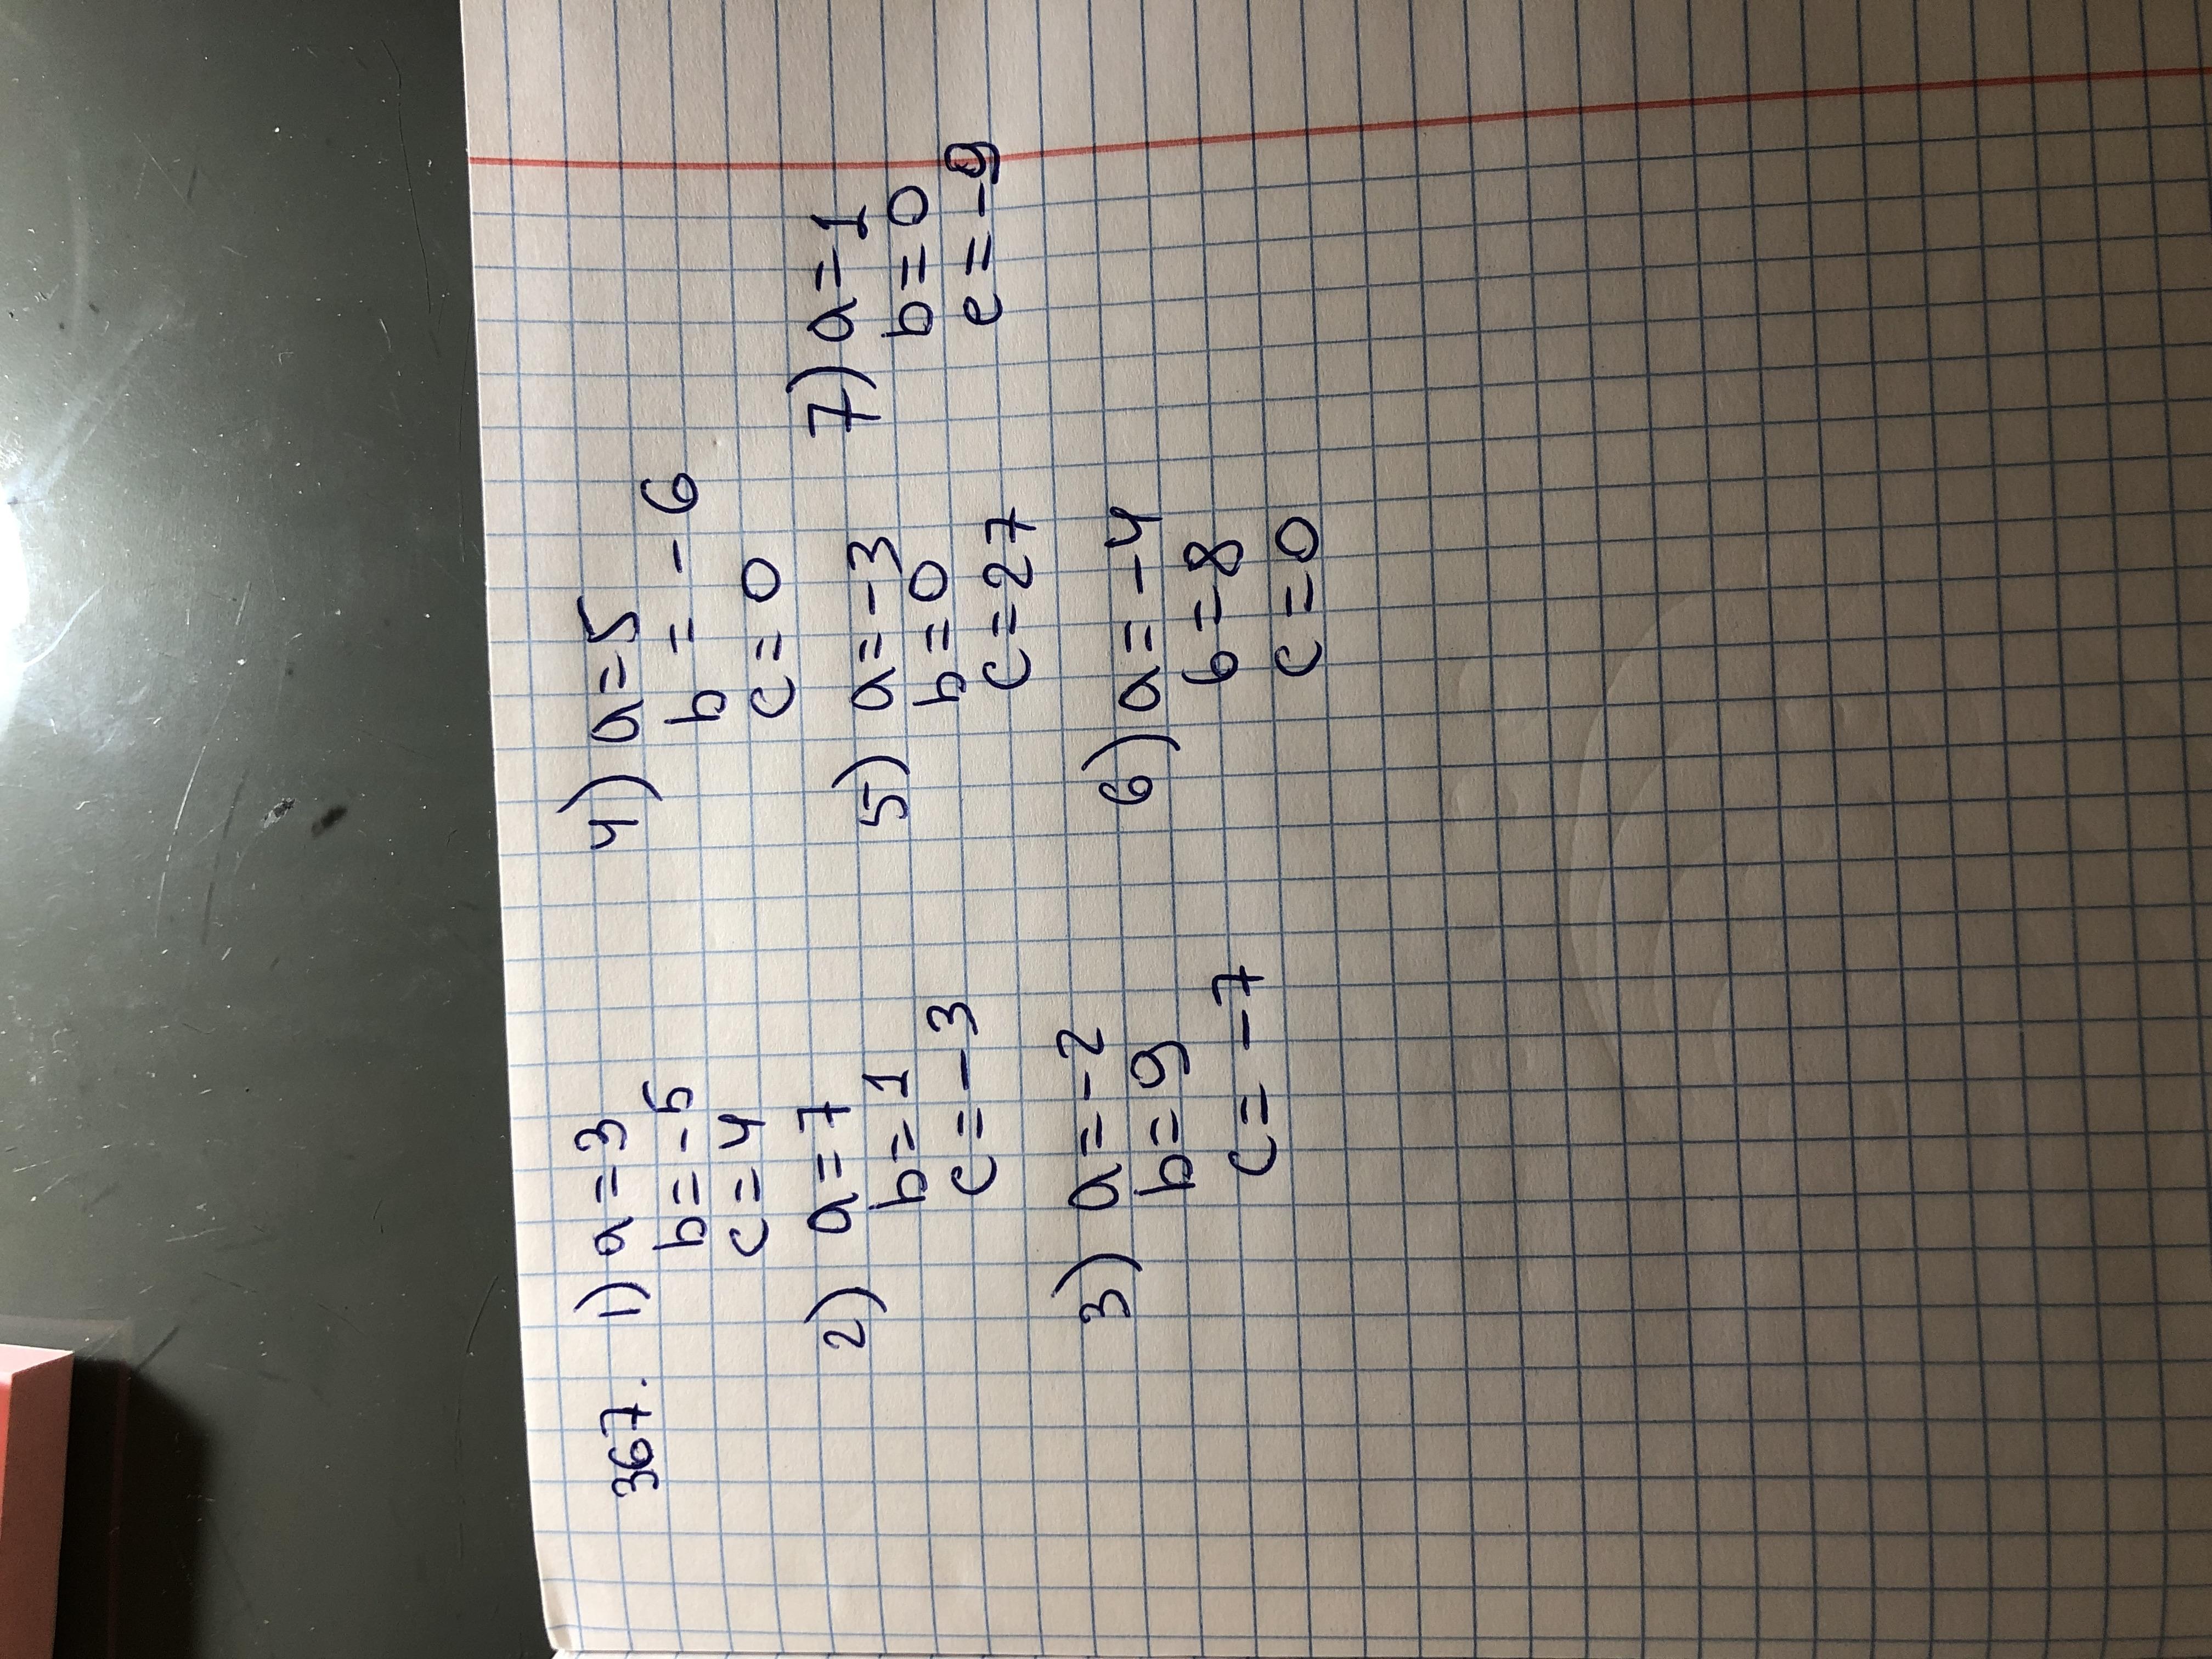 367. 1) a=3
b=-5
c=4
2) a=7
b=1
c=-3
3) a=-2
b=9
c=-7
4) a=5
b=-6
c=0
5) a=-3
b=0
c=27
6) a=-4
b=8
c=0
7) a=1
b=0
c=-9